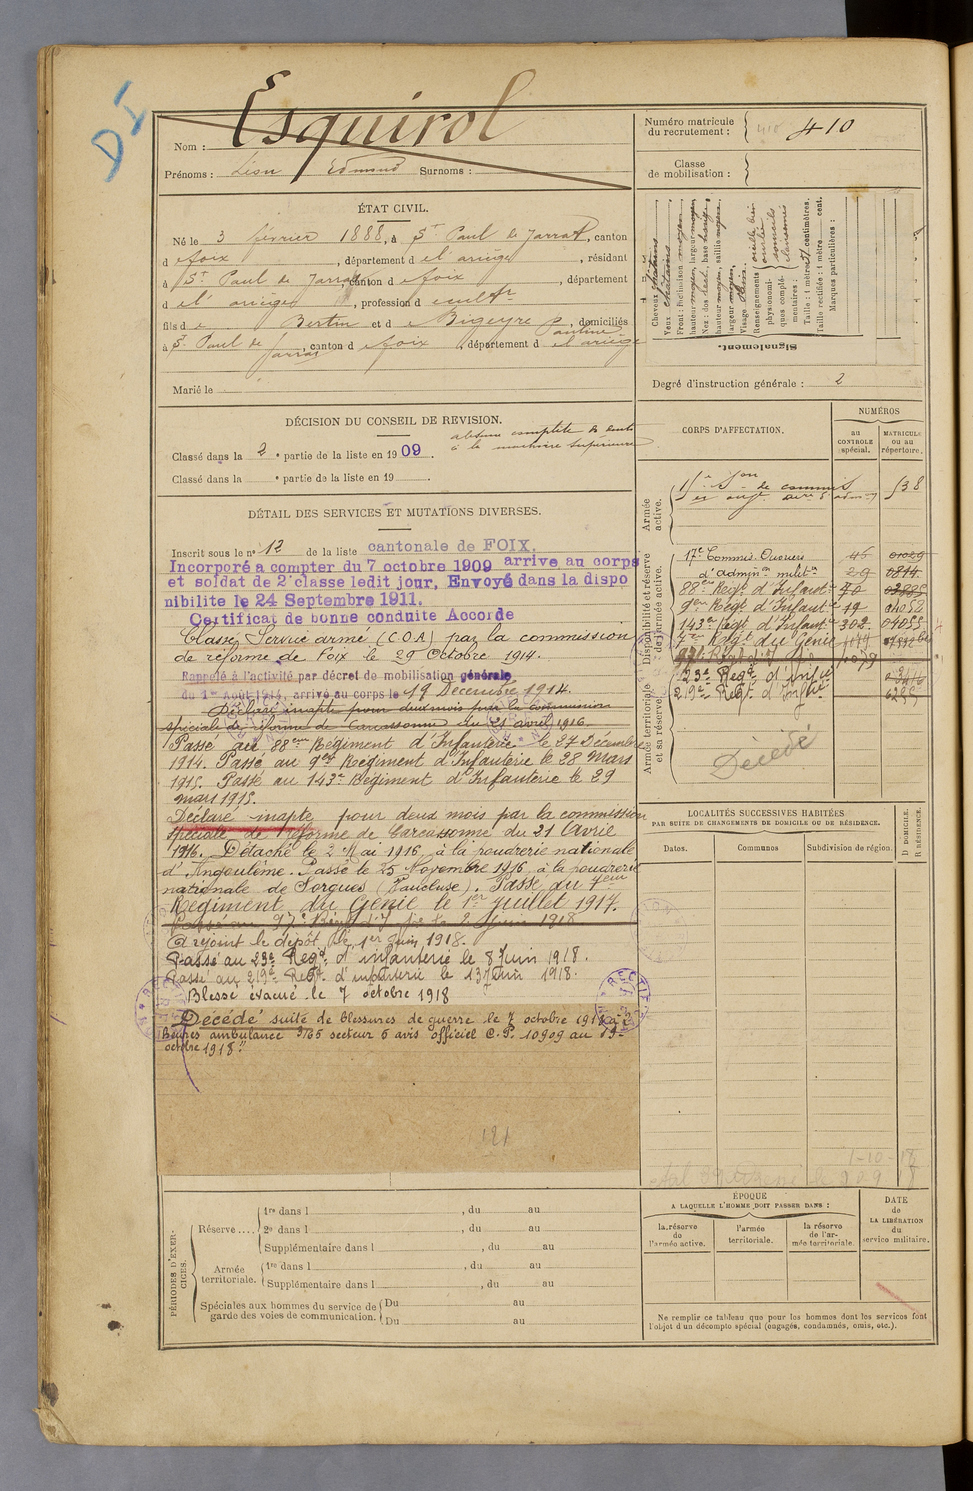 DI
Nom : Esquirol
Prénoms : Léon Edmond Surnoms :
Numéro matricule
du recrutement : 410
Classe
de mobilisation :
ÉTAT CIVIL.
Né le 3 février 1888, à St Paul de Jarrat, canton
d e Foix, département d e l'ariège, résidant
à St Paul de Jarrat canton d e Foix, département
d e l'ariège, profession d e cultr
fils d e Bertin et d e Bigeyre Pauline, domiciliés
à St Paul de Jarrat, canton d e Foix, département d e l'ariège
Marié le
Signalement.
Cheveux châtains
Yeux châtains
Front : inclinaison moyen
hauteur moyen, largeur moyen
Nez : dos rect., base horiz.
hauteur moyen, saillie moyen,
largeur moyen,
Visage
Renseignements
physionomi-
ques complé-
mentaires :
Taille : 1 mètre centimètres.
Taille rectifiée : 1 mètre cent.
Marques particulières :
Degré d'instruction générale : 2
DÉCISION DU CONSEIL DE REVISION.
Classé dans la 2e partie de la liste en 1909.
absence complète de dents
à la machoire supérieure
Classé dans la e partie de la liste en 19
CORPS D'AFFECTATION.
NUMÉROS
au
CONTROLE
spécial.
MATRICULE
ou au
répertoire.
Armée
active.
Disponibilité et réserve
de l'armée active.
17e Commis. Ouvriers 46
d'admon milit. 29 0814
88eme Régt d'Infantie 70
9eme Régt d'Infantie 19 04052
143e Régt d'Infantie 302 04055
7eme Régt du Génie
Armée territoriale
et sa réserve
23e Régt d'Infie
219e Régt d'Infie
Décédé
DÉTAIL DES SERVICES ET MUTATIONS DIVERSES.
Inscrit sous le n° 12 de la liste cantonale de FOIX.
Incorporé a compter du 7 octobre 1909 arrive au corps
et soldat de 2e classe ledit jour, Envoyé dans la dispo
nibilite le 24 Septembre 1911.
Certificat de bonne conduite Accorde
Classé Service armé (C.O.A) par la commission
de réforme de Foix le 29 Octobre 1914.
Rappelé à l'activité par décret de mobilisation générale
du 1er Août 1914, arrivé au corps le 19 Décembre 1914.
Déclaré inapte pour deux mois par la commission
spéciale de réforme de Carcassonne du 21 avril 1916
Passé au 88eme Régiment d'Infanterie le 27 Décembre
1914. Passé au 9eme Régiment d'Infanterie le 28 mars
1915. Passé au 143e Régiment d'Infanterie le 29
mars 1915.
Déclaré inapte pour deux mois par la commission
spéciale de réforme de Carcassonne du 21 Avril
1916. Détaché le 2 Mai 1916 à la poudrerie nationale
d'Angoulême. Passé le 25 Novembre 1916 à la poudrerie
nationale de Sorgues (Vaucluse). Passé au 7eme
Régiment du Génie le 1er juillet 1917.
Passé au 97e Régt d'Infie le 2 Juin 1918
A rejoint le dépôt le 1er Juin 1918.
Passé au 23e Regt d'infanterie le 8 Juin 1918.
Passé au 219e Regt d'infanterie le 13 Juin 1918.
Blessé évacué le 7 octobre 1918
Décédé suite de blessures de guerre le 7 octobre 1918 à
heures ambulance 3/65 secteur 6 avis officiel C.P. 10909 du 19
octobre 1918.
121
LOCALITÉS SUCCESSIVES HABITÉES
PAR SUITE DE CHANGEMENTS DE DOMICILE OU DE RÉSIDENCE.
Dates.
Communes
Subdivision de région.
D DOMICILE.
R RÉSIDENCE.
PÉRIODES D'EXER-
CICES.
Réserve....
1re dans l , du au
2e dans l , du au
Supplémentaire dans l , du au
Armée
territoriale.
1re dans l , du au
Supplémentaire dans l , du au
Spéciales aux hommes du service de
garde des voies de communication.
Du au
Du au
ÉPOQUE
A LAQUELLE L'HOMME DOIT PASSER DANS :
la réserve
de
l'armée active.
l'armée
territoriale.
la réserve
de l'ar-
mée territoriale.
DATE
de
LA LIBÉRATION
du
service militaire.
Ne remplir ce tableau que pour les hommes dont les services font
l'objet d'un décompte spécial (engagés, condamnés, omis, etc.).